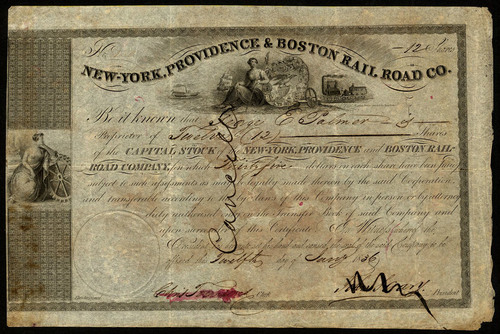 N 12 Shares
NEW-YORK, PROVIDENCE & BOSTON RAIL ROAD CO.
Be it known that E Palmer is
Proprietor of Twelve (12) Shares
of the CAPITAL STOCK of the NEW-YORK, PROVIDENCE and BOSTON RAIL-
ROAD COMPANY, on which dollars on each share have been paid
subject to such assessments as may be legally made thereon by the said Corporation
and transferable according to the By-Laws of this Company in person or by attorney
duly authorised upon the Transfer Book of said Company and
upon surrender of this Certificate. Witness
President the seal of the said Company to be
the Twelfth day of Jany 1836
Cancelled
Clerk President